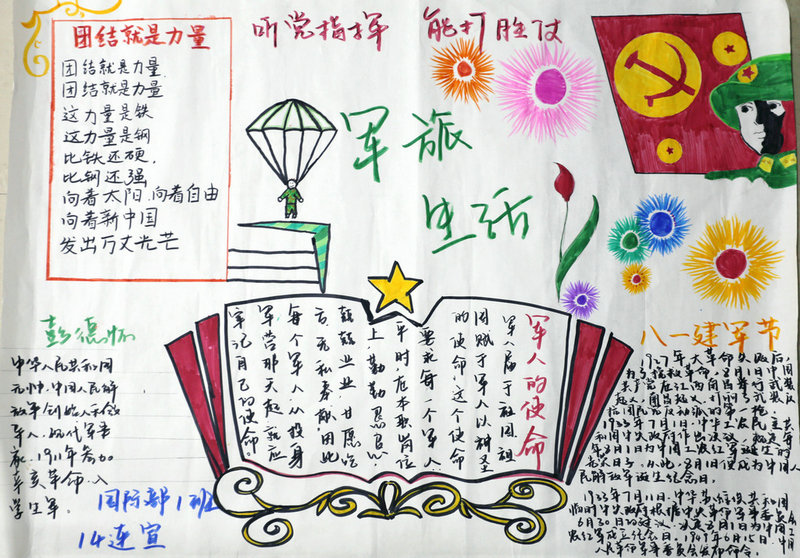 团结就是力量
团结就是力量
团结就是力量
这力量是铁
这力量是钢
比铁还硬,
比钢还强
向着太阳,向着自由
向着新中国
发出万丈光芒
听党指挥 能打胜仗
军旅
生活
彭德怀
中华人民共和国
元帅,中国人民解
放军创始人和领
军人,现代军事
家,1911年参加
辛亥革命,入
学生军.
国际部1班
14连宣
军人的使命
军人属于祖国,祖
国赋于军人以神圣
的使命,这个使命
要求每一个军人
平时,在本职岗位
上,勤勤恳恳,
兢兢业业,甘愿吃
无私奉献,因此
每个军人从投身
军营那天起就应
牢记自己的使命.
八一建军节
1927年大革命失败后,
1933年7月11日,中华
民解放军诞生纪念日.
1933年7月11日,中华苏维埃共和国
临时中央政府根据中央革命军事委员会
6月30日的建议,决定8月1日为中国工
农红军成立纪念日.1949年6月15日,中国
人民革命军事委员会发布命令.